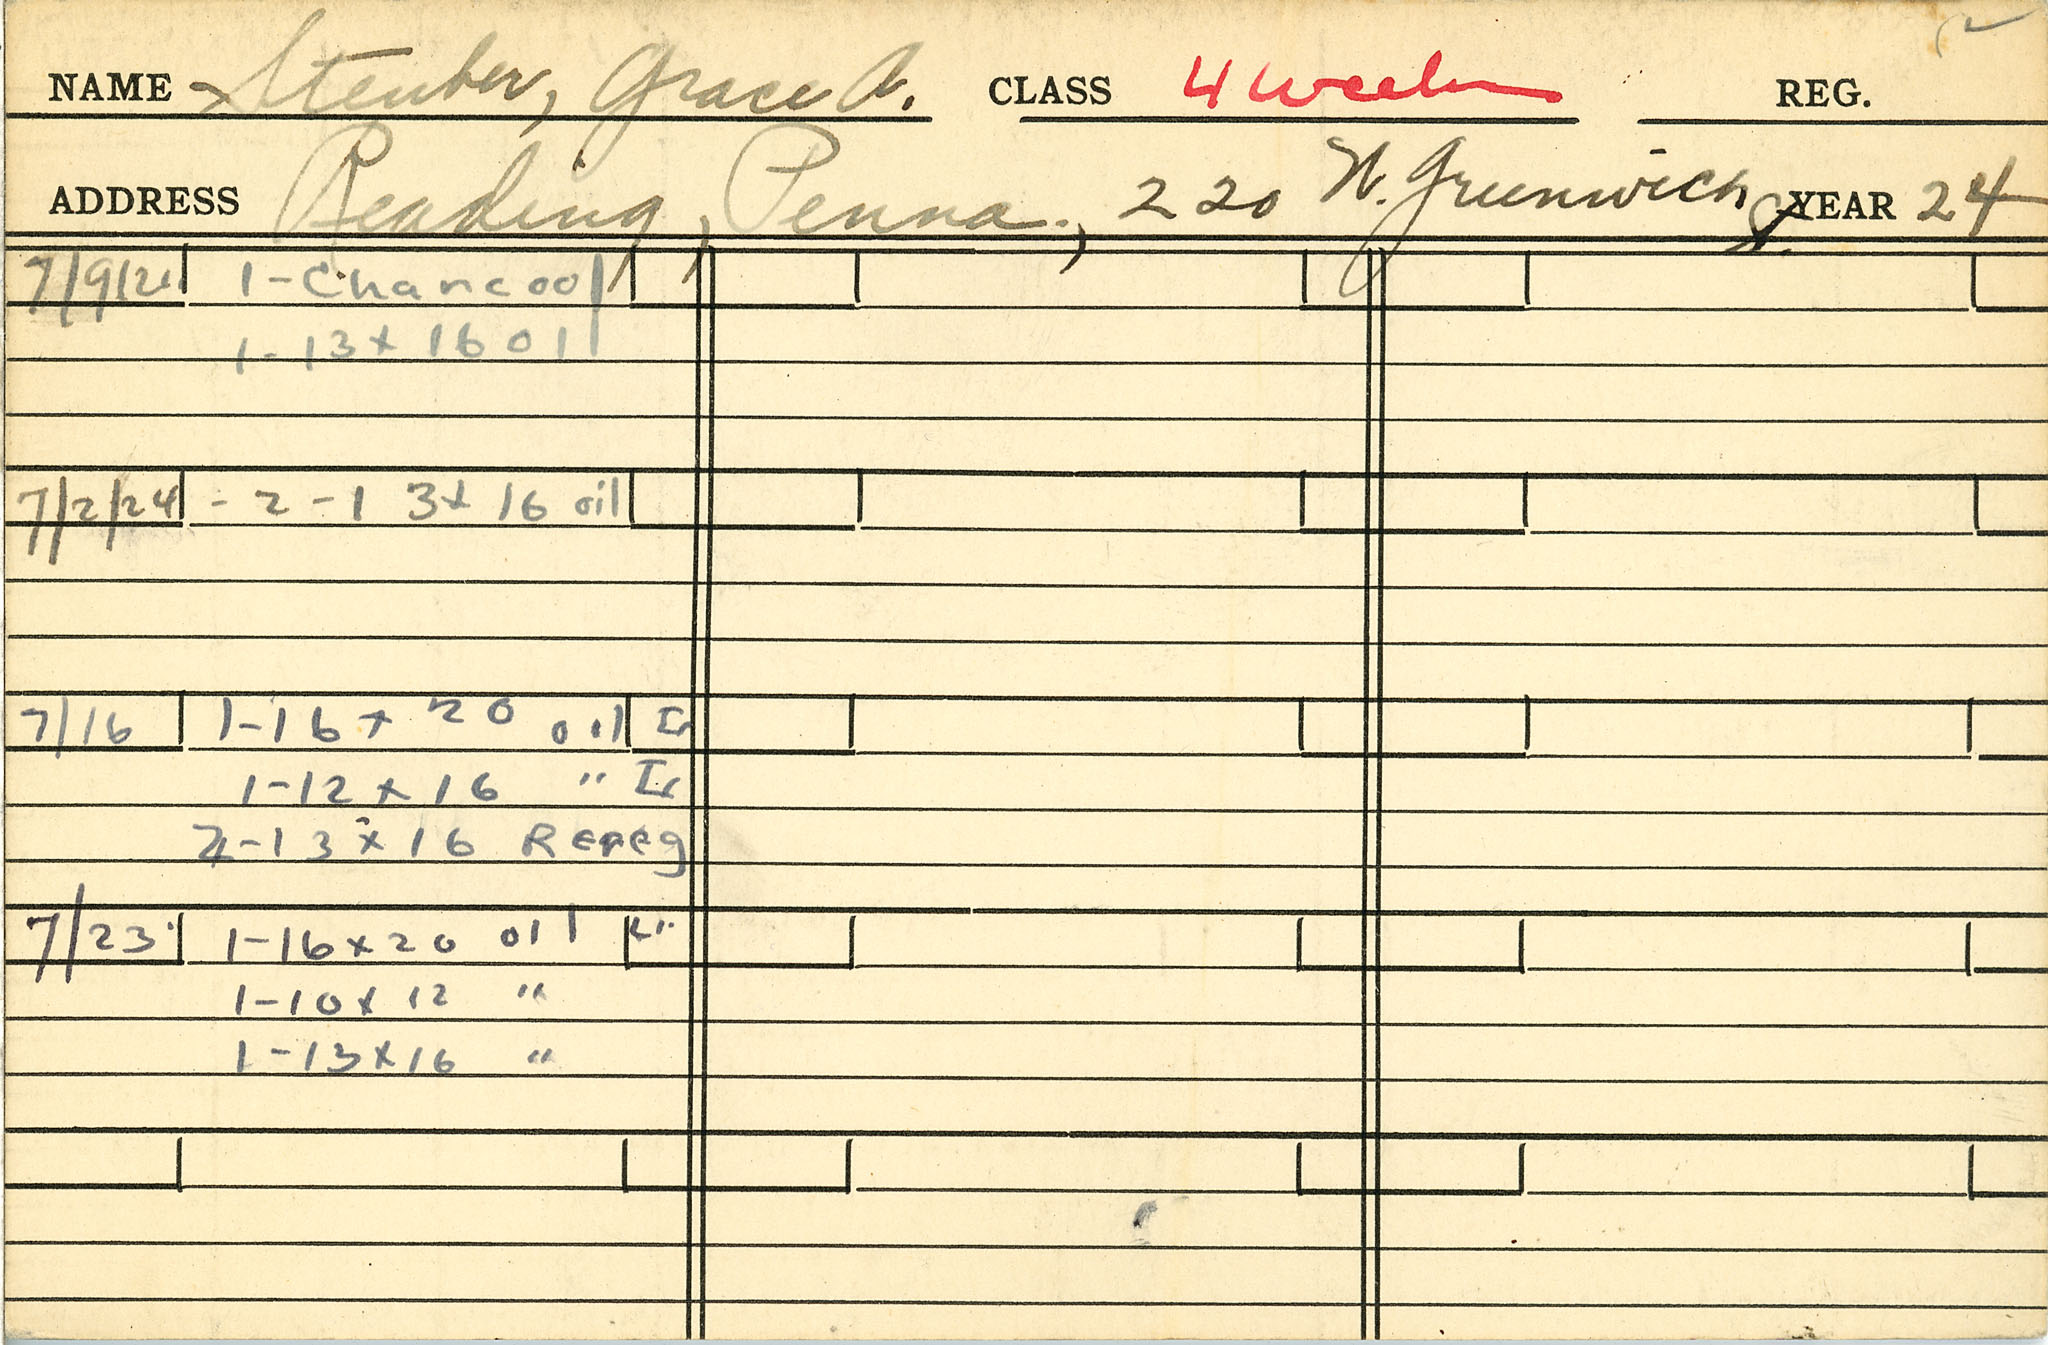 NAME Steuber, Grace A. CLASS 4 Weeks REG.
ADDRESS Reading, Penna., 220 W. Greenwich St. YEAR 24
7/9/24 1-Charcool
1-13x16 oil
7/2/24 - 2 - 13x16 oil
7/16 1-16x20 oil
1-12x16 "
2-13x16 Rereg
7/23 1-16x20 oil
1-10x12 "
1-13x16 "